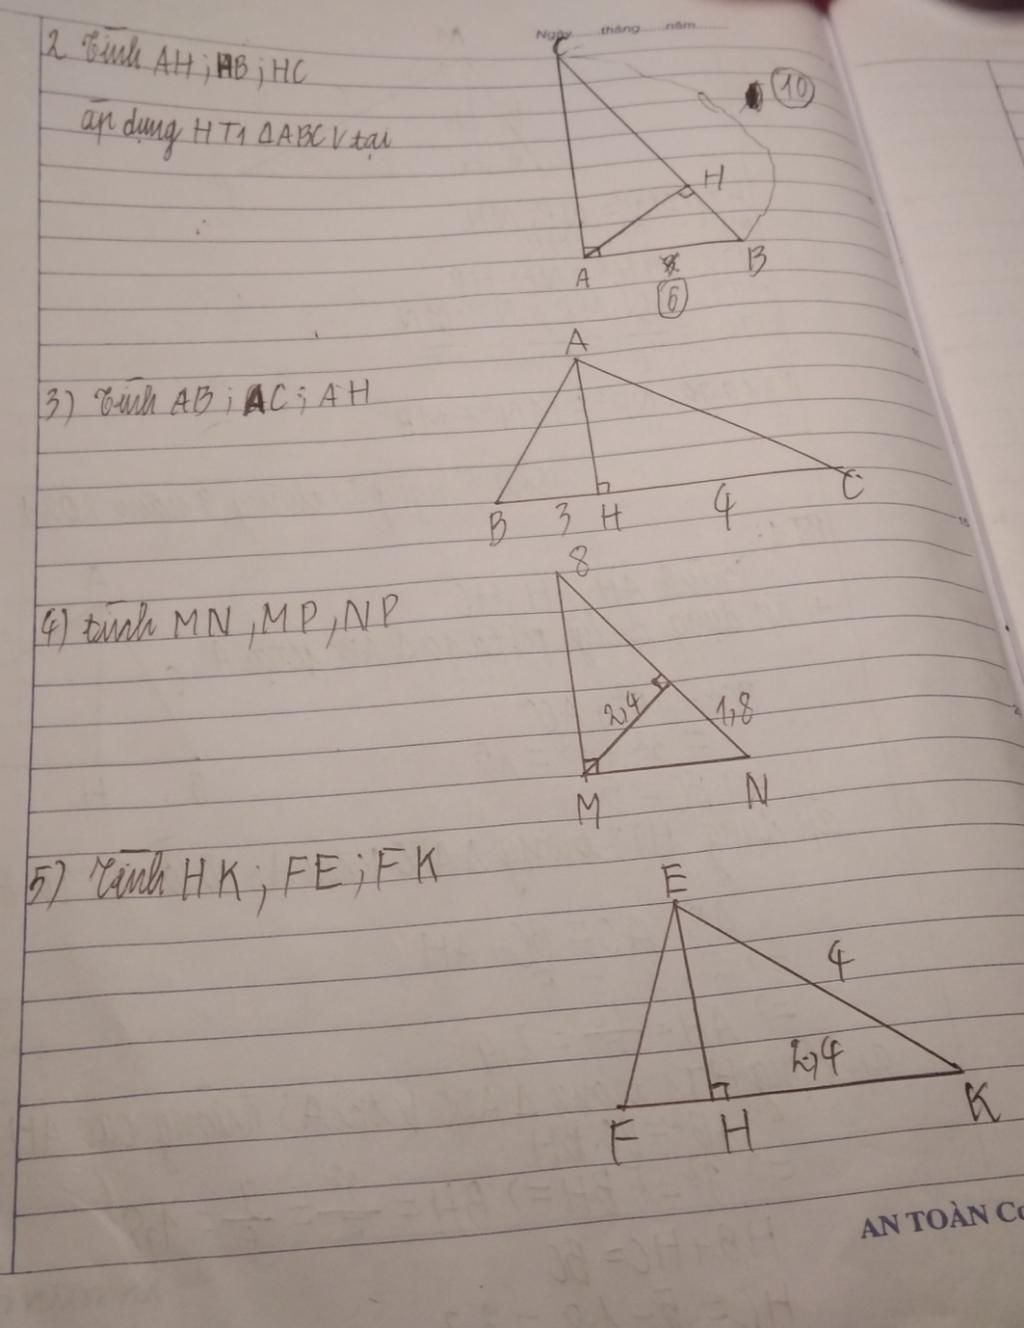 Ngày tháng năm
2 Tính AH; HB; HC
áp dụng HT1 ΔABC V tại
C
10
H
A
B
6
3) Tính AB; AC; AH
A
B 3 H 4 C
8
4) tính MN, MP, NP
2,4 1,8
M N
5) Tính HK; FE; FK
E
4
2,4
F H K
AN TOÀN